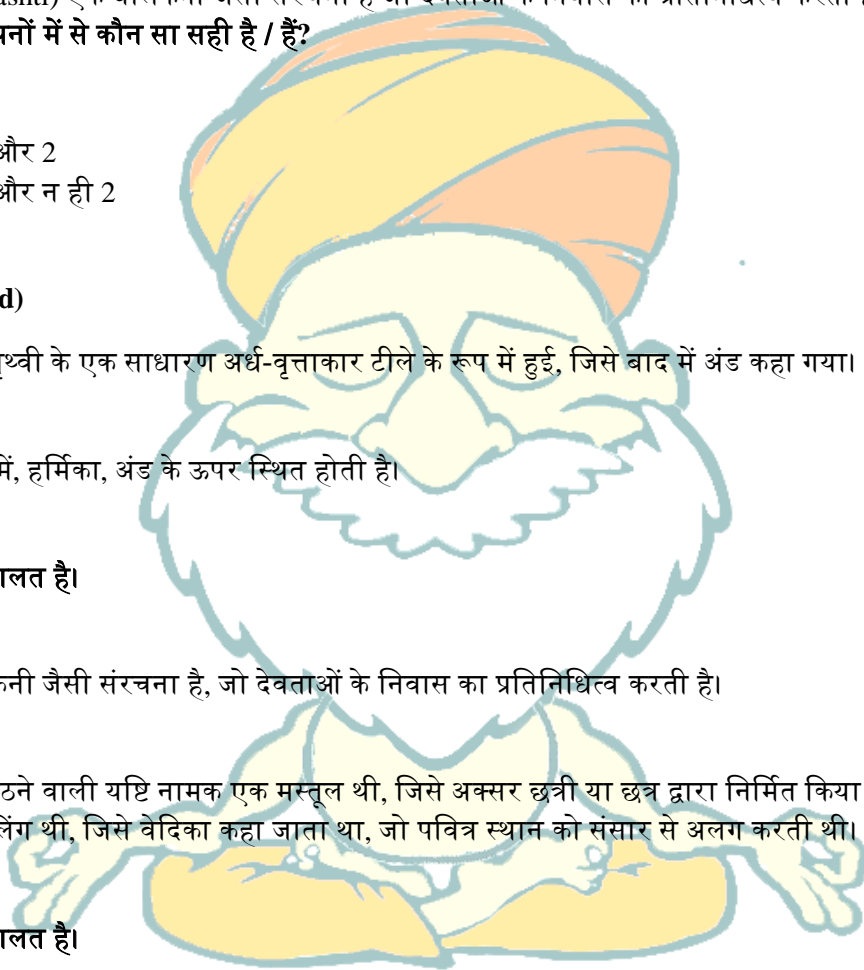 यनों में से कौन सा सही है / हैं?
और 2
और न ही 2
d)
पृथ्वी के एक साधारण अर्ध-वृत्ताकार टीले के रूप में हुई, जिसे बाद में अंड कहा गया।
में, हर्मिका, अंड के ऊपर स्थित होती है।
गलत है।
कनी जैसी संरचना है, जो देवताओं के निवास का प्रतिनिधित्व करती है।
ठने वाली यष्टि नामक एक मस्तूल थी, जिसे अक्सर छत्री या छत्र द्वारा निर्मित किया
लिंग थी, जिसे वेदिका कहा जाता था, जो पवित्र स्थान को संसार से अलग करती थी।
गलत है।